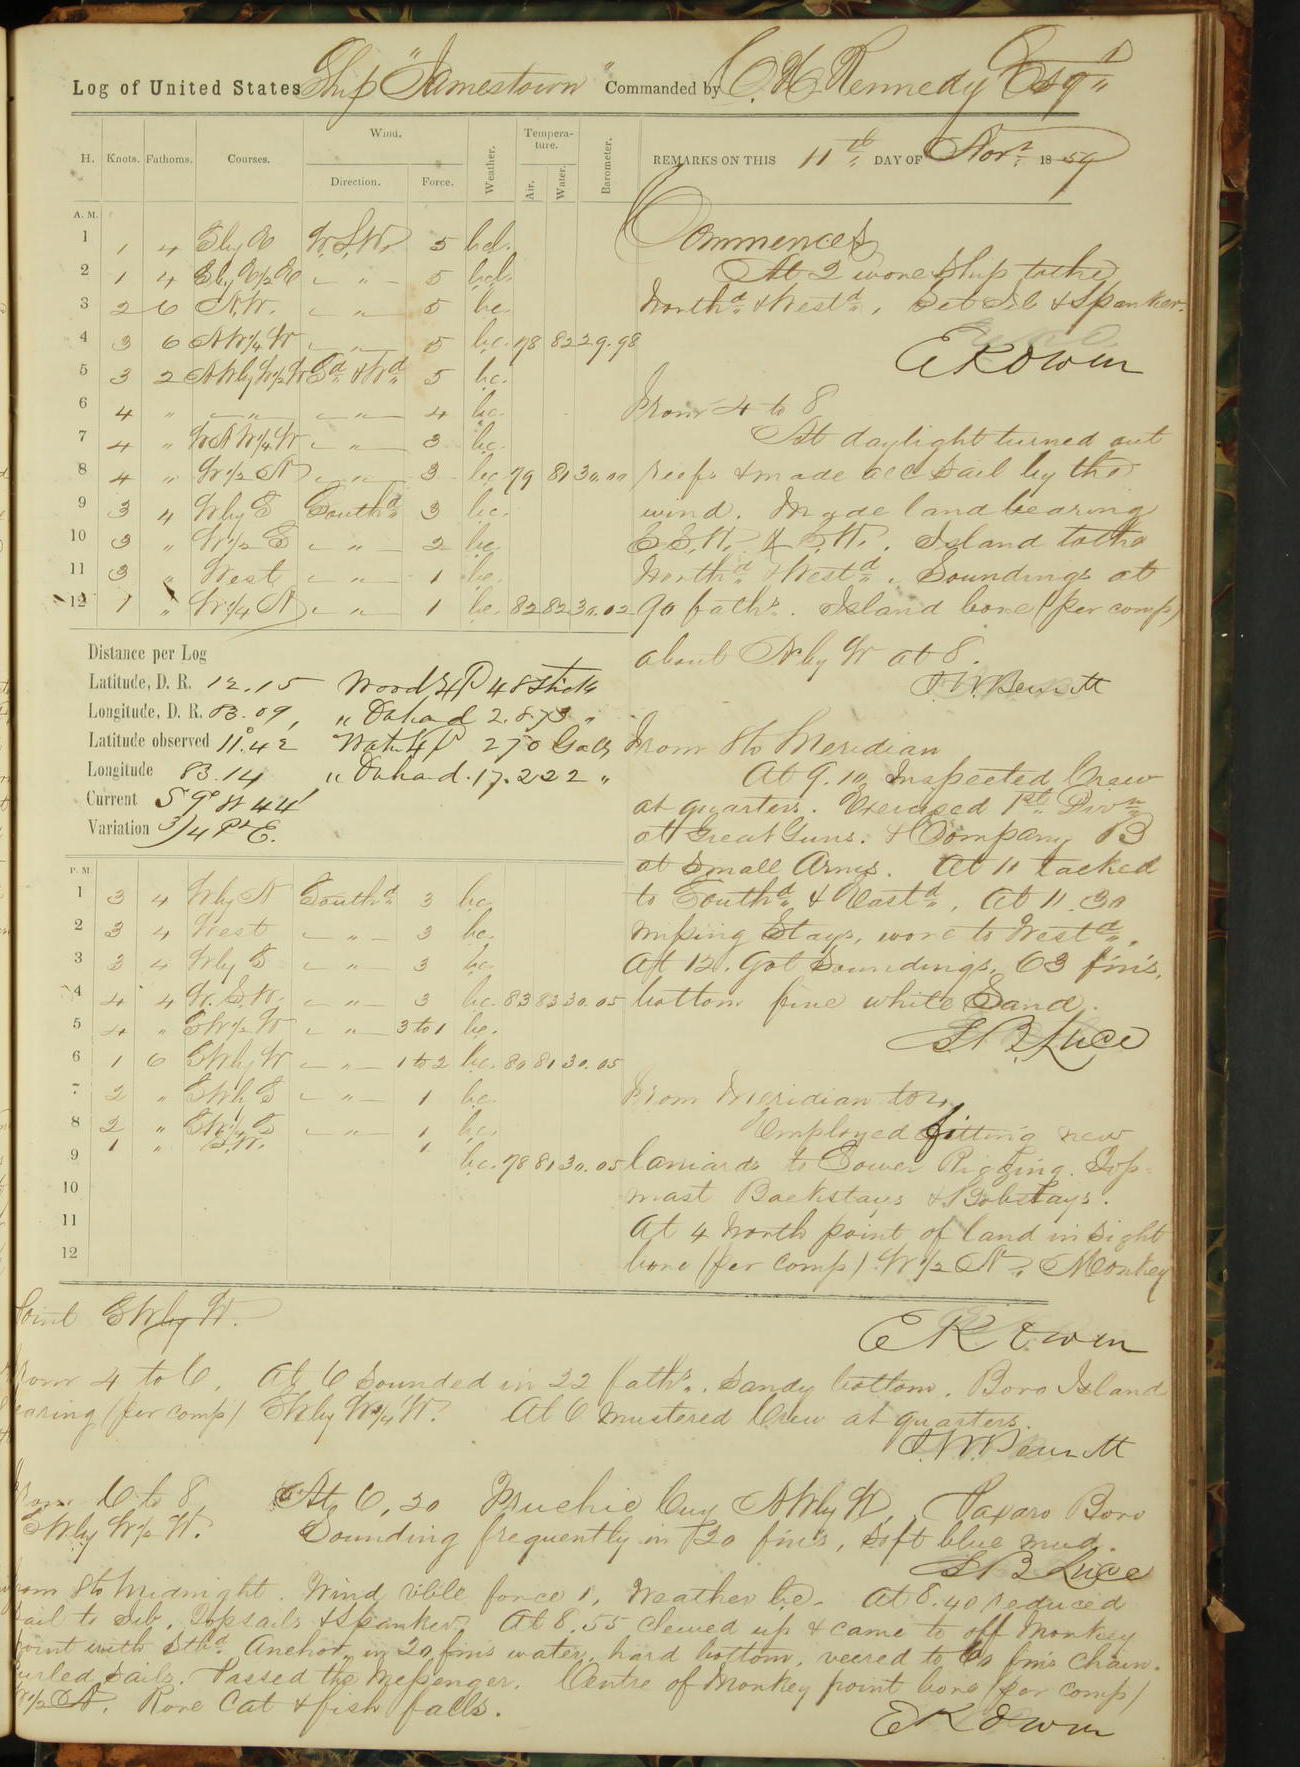 Log of United States Ship "Jamestown" Commanded by C. H. Kennedy Esqr
H. Knots. Fathoms. Courses. Wind. Direction. Force. Weather. Tempera-ture. Air. Water. Barometer.
REMARKS ON THIS 11th DAY OF Novr 1859
A. M.
1 1 4 W.S.W. 5
2 1 4 " 5
3 2 6 N.W. " 5 bc.
4 3 6 NW1/4W " 5 bc. 78 82 29.98
5 3 2 NWbyW1/2W Sd & Wd 5 bc.
6 4 " " " 4 bc.
7 4 " WNW1/4W " 3 bc.
8 4 " W1/2N " 3 bc. 79 81 30.00
9 3 4 WbyS Southd 3 bc.
10 3 " W1/2S " 2 bc.
11 3 " West " 1 bc.
12 1 " W1/4N " 1 bc. 82 82 30.02
Commences
At 2 wore Ship to the
Northd & Westd, Set Jib & Spanker.
E K Owen
From 4 to 8
At daylight turned out
reefs & made all sail by the
wind. Made land bearing
Island to the
Northd & Westd. Soundings at
90 faths. Island bore (per comp)
about NbyW at 8.
J. W. Bennett
Distance per Log
Latitude, D. R. 12.15 Wood 48 Sticks
Longitude, D. R. 83.09 " On hand 2.873 "
Latitude observed 11°.42 Water 270 Galls
Longitude 83.14 " On hand 17.222 "
Current
Variation 3/4 Pt E.
From 8 to Meridian
At 9.10 Inspected Crew
at quarters. Exercised 1st Divn
at Great Guns. & Company B
at Small Arms. At 11 tacked
to Southd & Eastd, At 11.30
missing Stays, wore to Westd.
At 12. Got Soundings, 63 fms,
bottom fine white Sand.
S B Luce
P. M.
1 3 4 WbyN Southd 3 bc.
2 3 4 West " 3 bc.
3 3 4 WbyS " 3 bc.
4 4 4 W.S.W. " 3 bc. 83 83 30.05
5 4 " SW1/2W " 3 to 1 bc.
6 1 6 SWbyW " 1 to 2 bc. 80 81 30.05
7 2 " SWbyS " 1 bc.
8 2 " " 1 bc.
1 " S.W. "
9 bc. 78 81 30.05
10
11
12
From Meridian to 4
Employed fitting new
laniards to Lower Rigging. Top-
mast Backstays & Bobstays.
At 4 North point of land in sight
bore (per comp) W1/2N, Monkey
Point SWbyW.
E K Owen
From 4 to 6, At 6 Sounded in 22 faths. Sandy bottom. Boro Island
bearing (per comp) At 6 mustered Crew at quarters.
J. W. Bennett
From 6 to 8 At 6,20 NWbyW, Paxaro Bovo
SWbyW1/2W. Sounding frequently in 20 fms, soft blue mud.
S B Luce
From 8 to Midnight. Wind vble force 1, Weather bc. At 8.40 reduced
sail to Jib, Topsails & Spanker. At 8.55 clewed up & came to off Monkey
point with Stbd Anchor, in 20 fms water, hard bottom, veered to 60 fms Chain.
furled Sails. Passed the Messenger. Centre of Monkey point bore (per comp)
W1/2N. Rove Cat & fish falls.
E K Owen